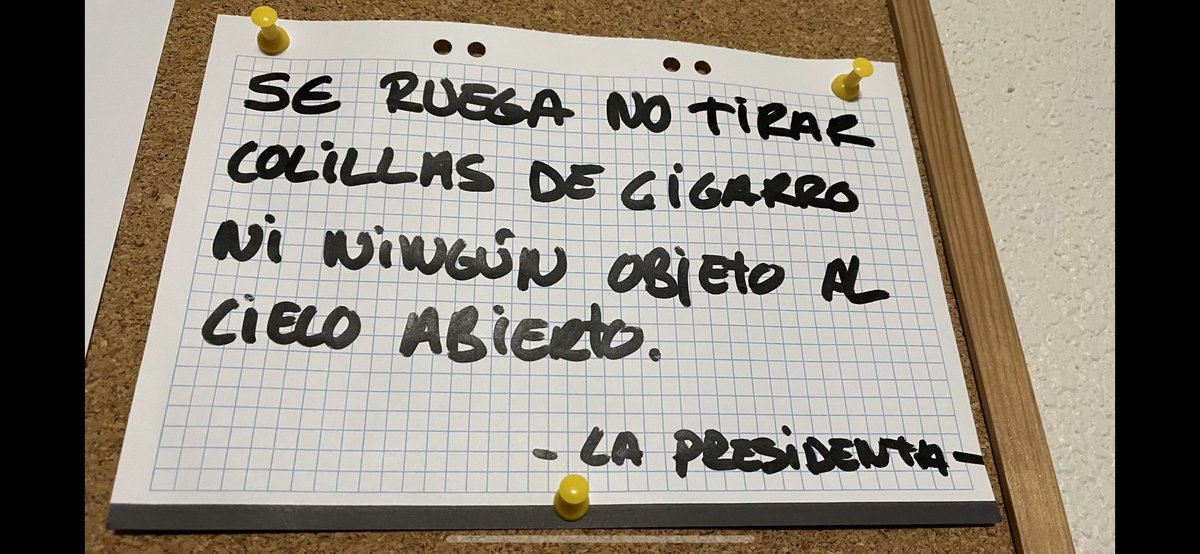 SE RUEGA NO TIRAR
COLILLAS DE CIGARRO
NI NINGÚN OBJETO AL
CIELO ABIERTO.
- LA PRESIDENTA -